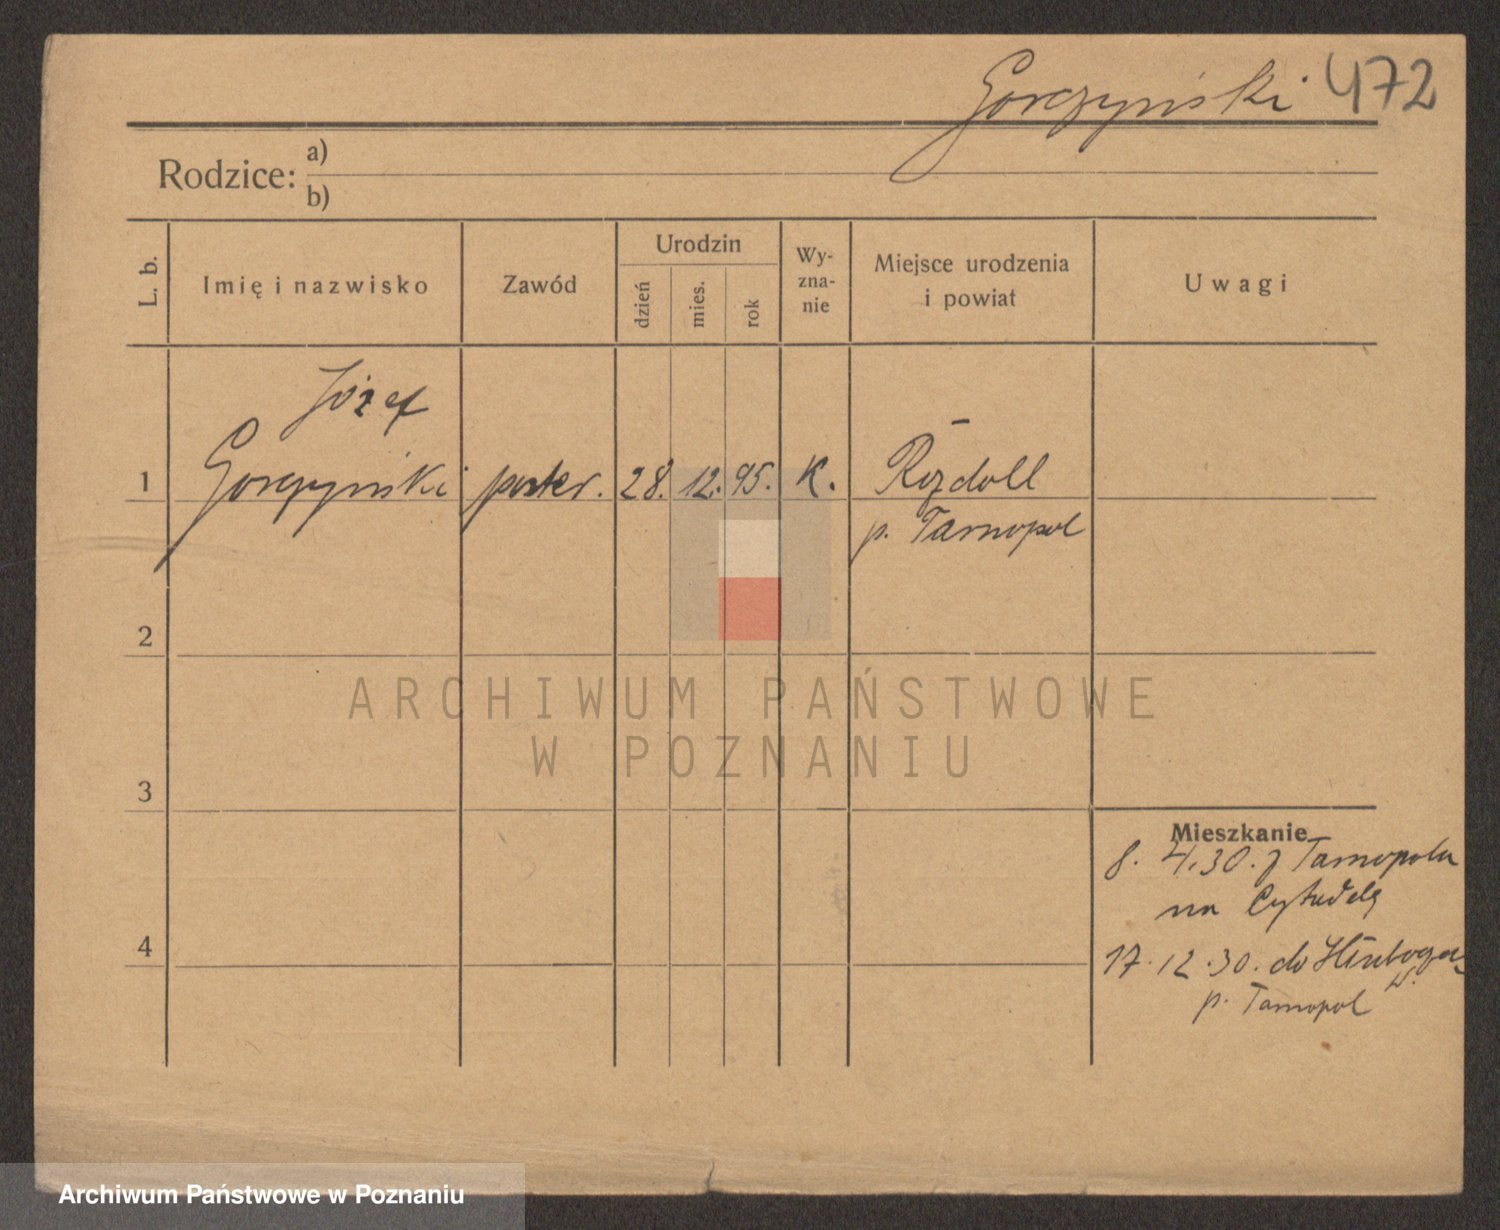 Gorczyński 472
Rodzice: a)
b)
L. b.
Imię i nazwisko
Zawód
Urodzin
dzień
mies.
rok
Wy-
zna-
nie
Miejsce urodzenia
i powiat
Uwagi
Józef
1 Gorczyński poster. 28. 12. 95. K. Rozdoll
p. Tarnopol
2
3
4
Mieszkanie
8. 4. 30. z Tarnopola
na Cytadelę
17. 12. 30. do
p. Tarnopol
ARCHIWUM PAŃSTWOWE
W POZNANIU
Archiwum Państwowe w Poznaniu